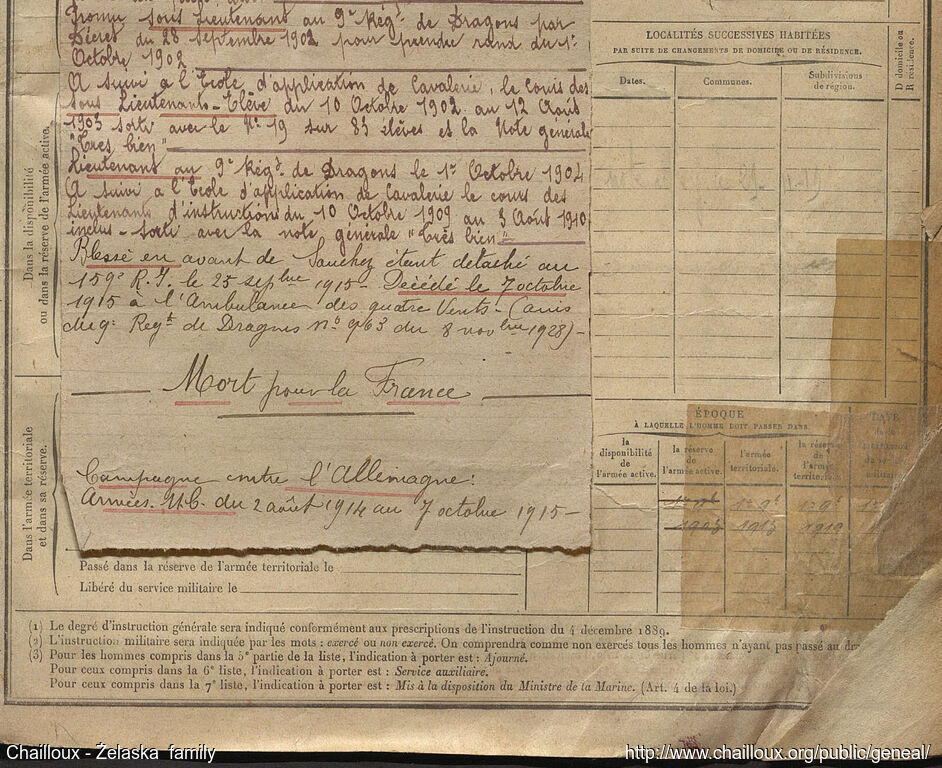 Promu sous Lieutenant au 9e Régt de Dragons par
Décret du 28 Septembre 1902 pour prendre rand du 1er
Octobre 1902
A suivi à l'Ecole d'application de Cavalerie, le cours des
Sous Lieutenants-Elève du 10 Octobre 1902 au 12 Août
1903 sorti avec le No 19 sur 83 élèves et la Note générale
"Très bien"
Lieutenant au 9e Régt de Dragons le 1er Octobre 1904
A suivi à l'Ecole d'application de Cavalerie le cours des
Lieutenants d'instructions du 10 Octobre 1909 au 3 Août 1910
inclus - sorti avec la note générale "Très bien"
Blessé en avant de Souchez étant détaché au
159e R.I. le 25 septbre 1915 - Décédé le 7 octobre
1915 à l'Ambulance des quatre Vents - (avis
Régt de Dragons no 963 du 8 novbre 1928) -
Mort pour la France
Campagne contre l'Allemagne :
Armées. N.E. du 2 août 1914 au 7 octobre 1915 -
Dans la disponibilité
ou dans la réserve de l'armée active.
Dans l'armée territoriale
et dans sa réserve.
Passé dans la réserve de l'armée territoriale le
Libéré du service militaire le
LOCALITÉS SUCCESSIVES HABITÉES
PAR SUITE DE CHANGEMENTS DE DOMICILE OU DE RÉSIDENCE.
Dates.
Communes.
Subdivisions
de région.
D domicile ou
R résidence.
ÉPOQUE
À LAQUELLE L'HOMME DOIT PASSER DANS
la
disponibilité
de
l'armée active.
la réserve
de
l'armée active.
l'armée
territoriale.
la réserve
de
l'armée
territoriale.
DATE
1903
1913
1919
(1) Le degré d'instruction générale sera indiqué conformément aux prescriptions de l'instruction du 4 décembre 1889.
(2) L'instruction militaire sera indiquée par les mots : exercé ou non exercé. On comprendra comme non exercés tous les hommes n'ayant pas passé au
(3) Pour les hommes compris dans la 5e partie de la liste, l'indication à porter est : Ajourné.
Pour ceux compris dans la 6e liste, l'indication à porter est : Service auxiliaire.
Pour ceux compris dans la 7e liste, l'indication à porter est : Mis à la disposition du Ministre de la Marine. (Art. 4 de la loi.)
Chailloux - Żelaska family
http://www.chailloux.org/public/geneal/